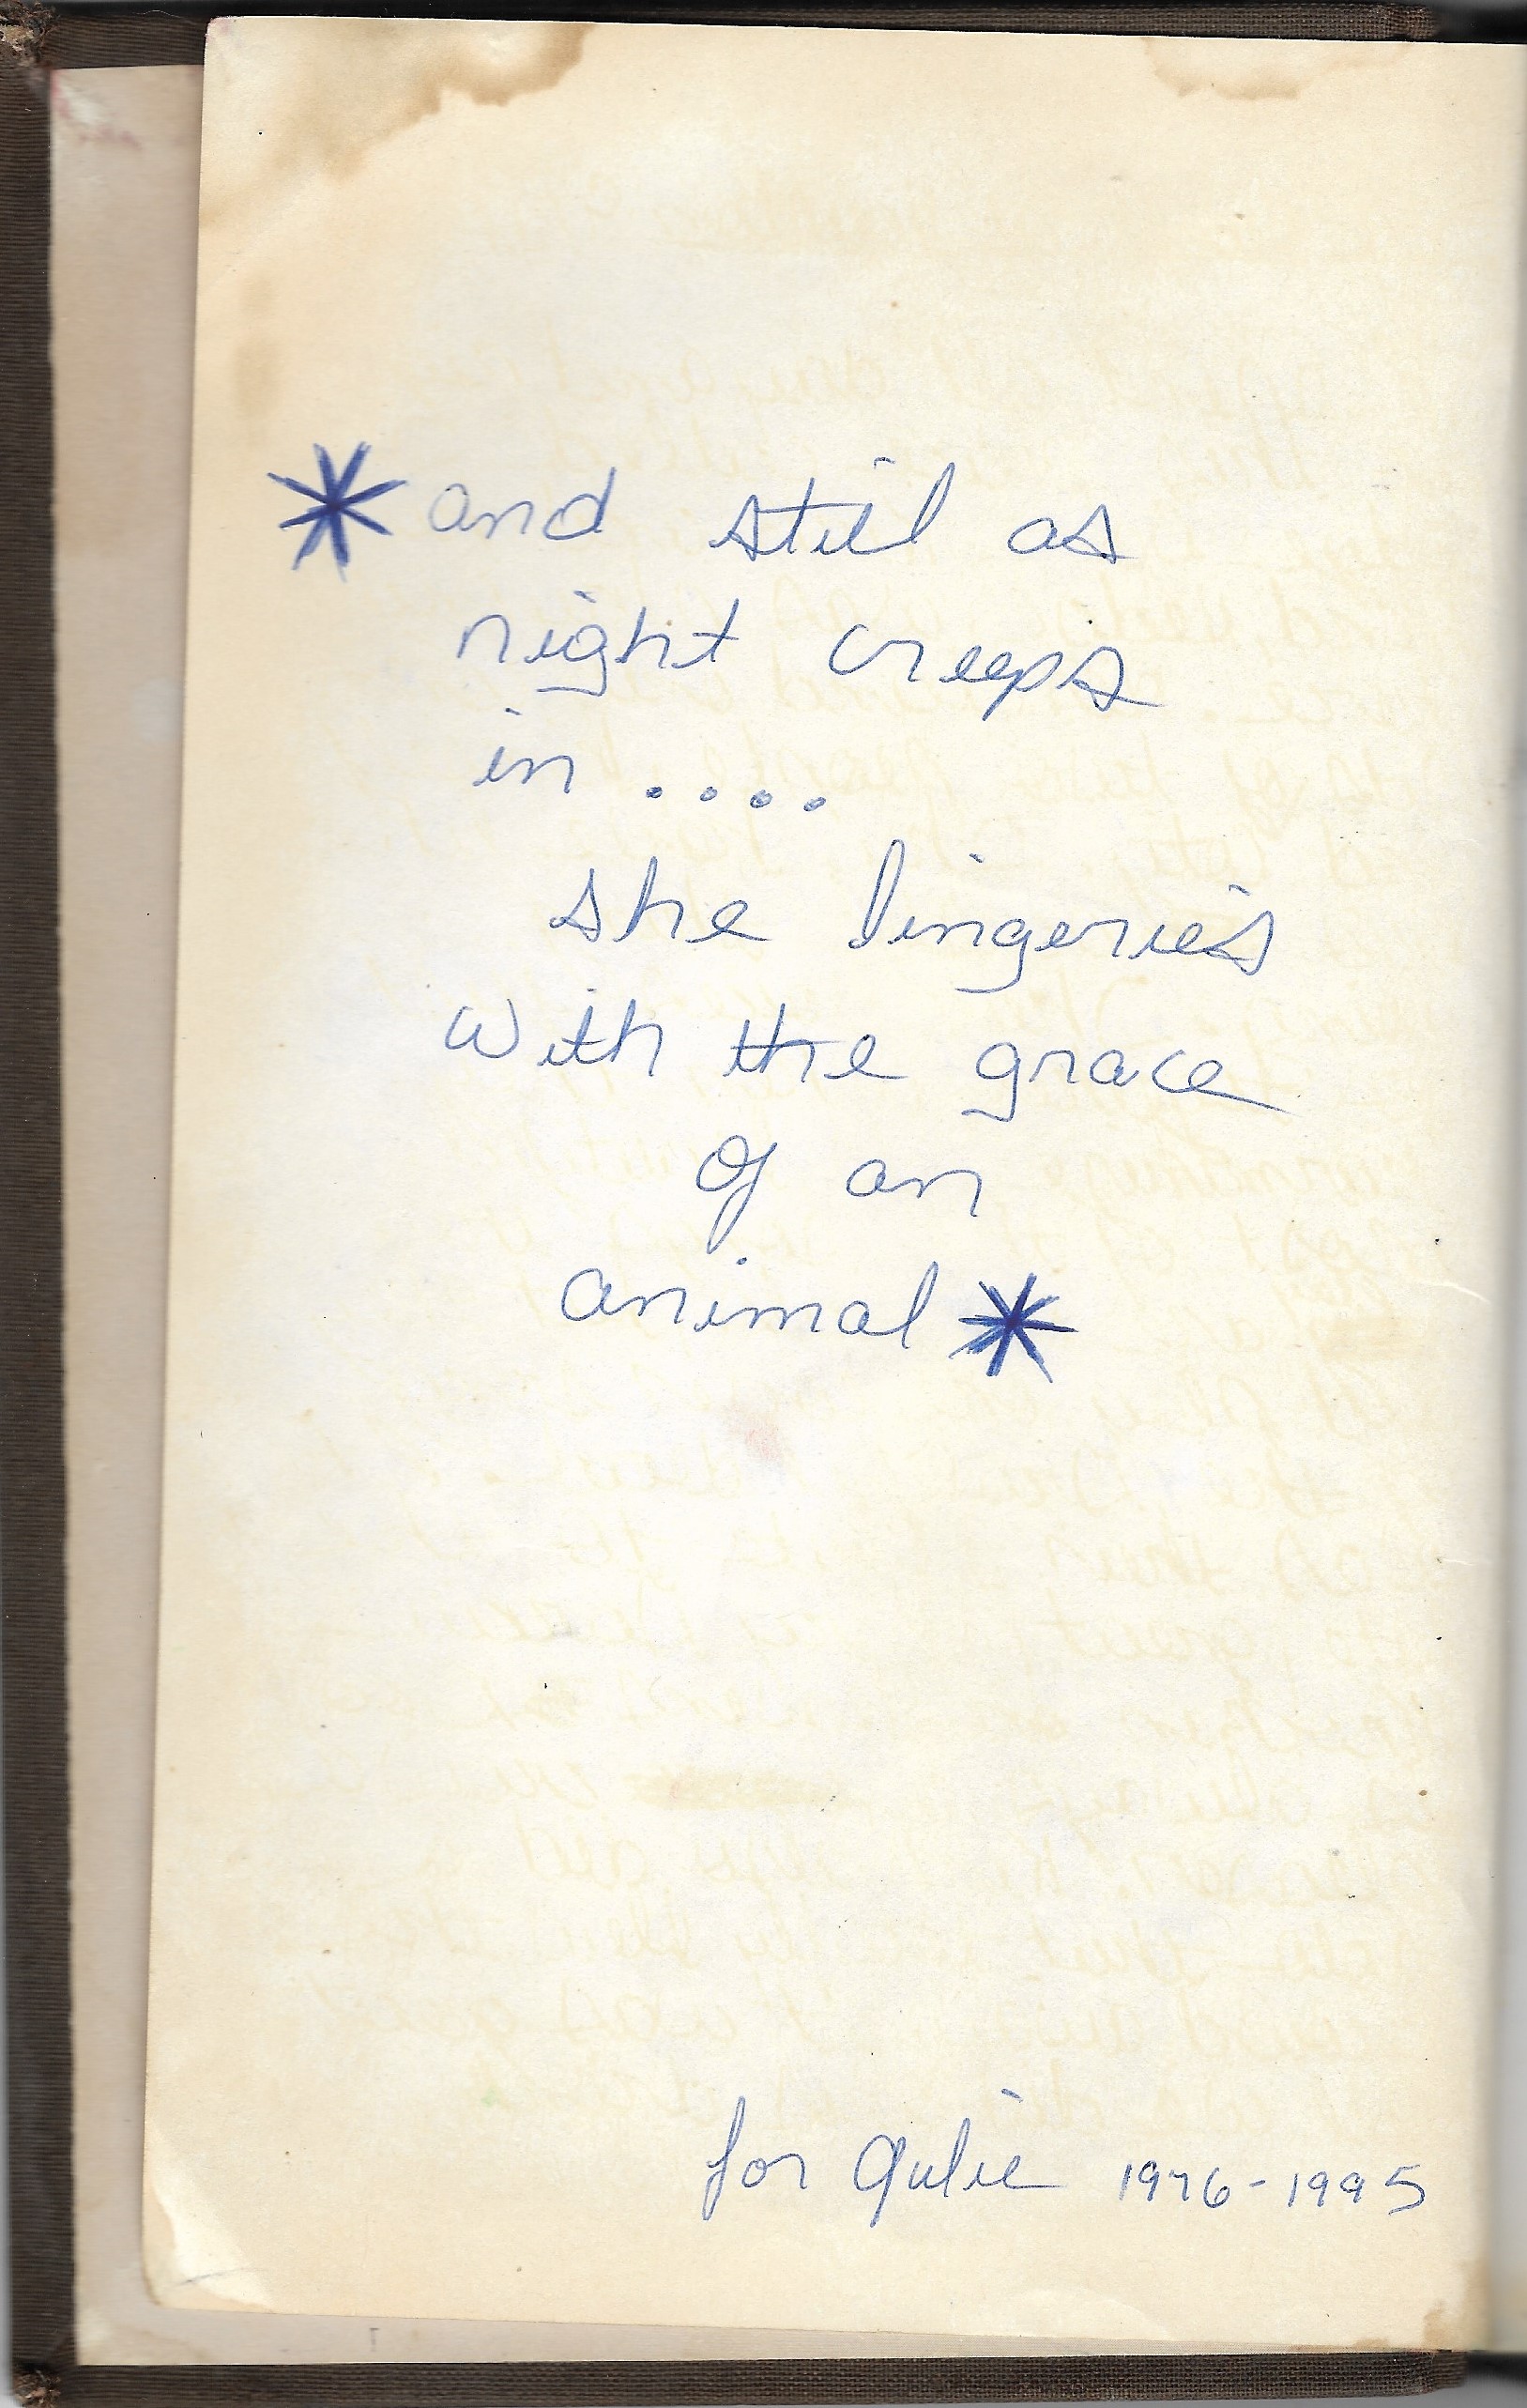 *and still as
night creeps
in ....
she lingeries
with the grace
of an
animal*
for Julie 1976-1995